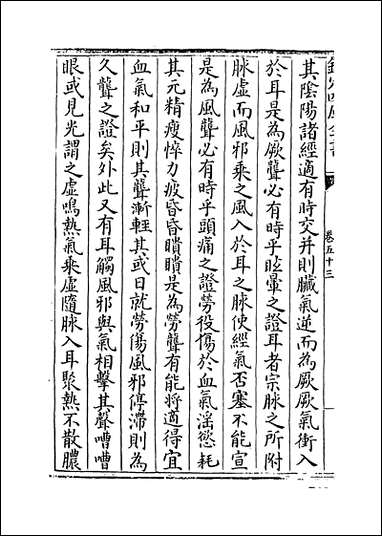 欽定四庫全書
卷五十三
其陰陽諸經適有時交并則臓氣逆而為厥厥氣衝入
於耳是為厥聾必有時乎眩暈之證耳者宗脉之所附
脉虚而風邪乗之風入於耳之脉使經氣否塞不能宣
是為風聾必有時乎頭痛之證勞役傷於血氣淫慾耗
其元精瘦悴力疲昏昏瞶瞶是為勞聾有能將適得宜
血氣和平則其聾漸輕其或日就勞傷風邪停滯則為
久聾之證矣外此又有耳觸風邪與氣相擊其聲嘈嘈
眼或見光謂之虚鳴熱氣乗虚隨脉入耳聚熱不散膿